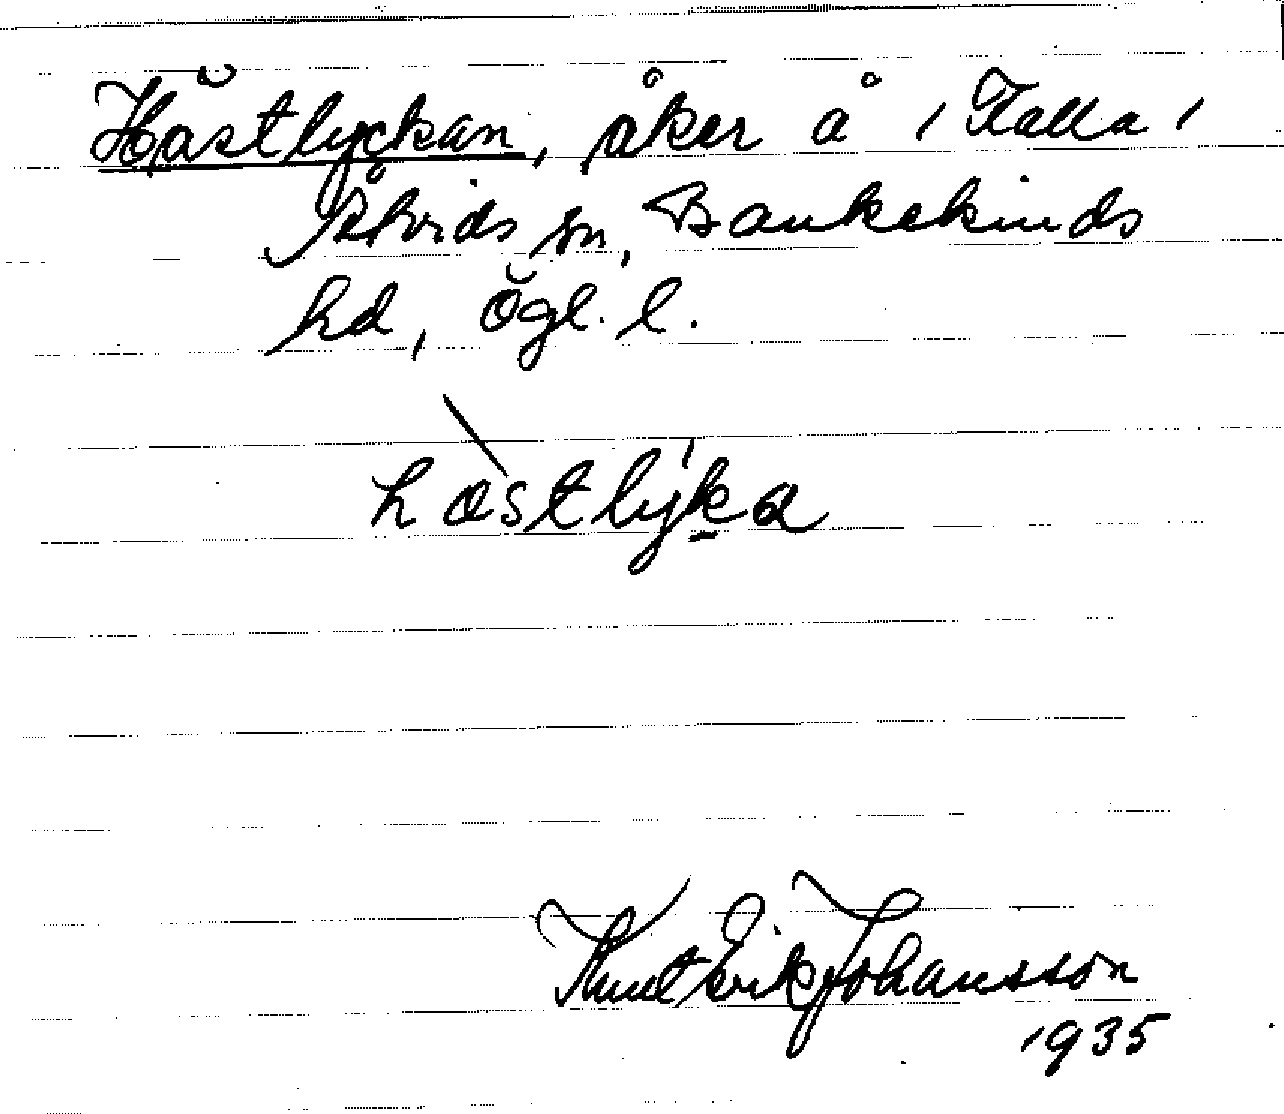 Hästlyckan, åker å 1 Falla 1
Åtvids sn, Bankekinds
hd, Ögl. l.
hästlyka
Knut Erik Johansson
1935